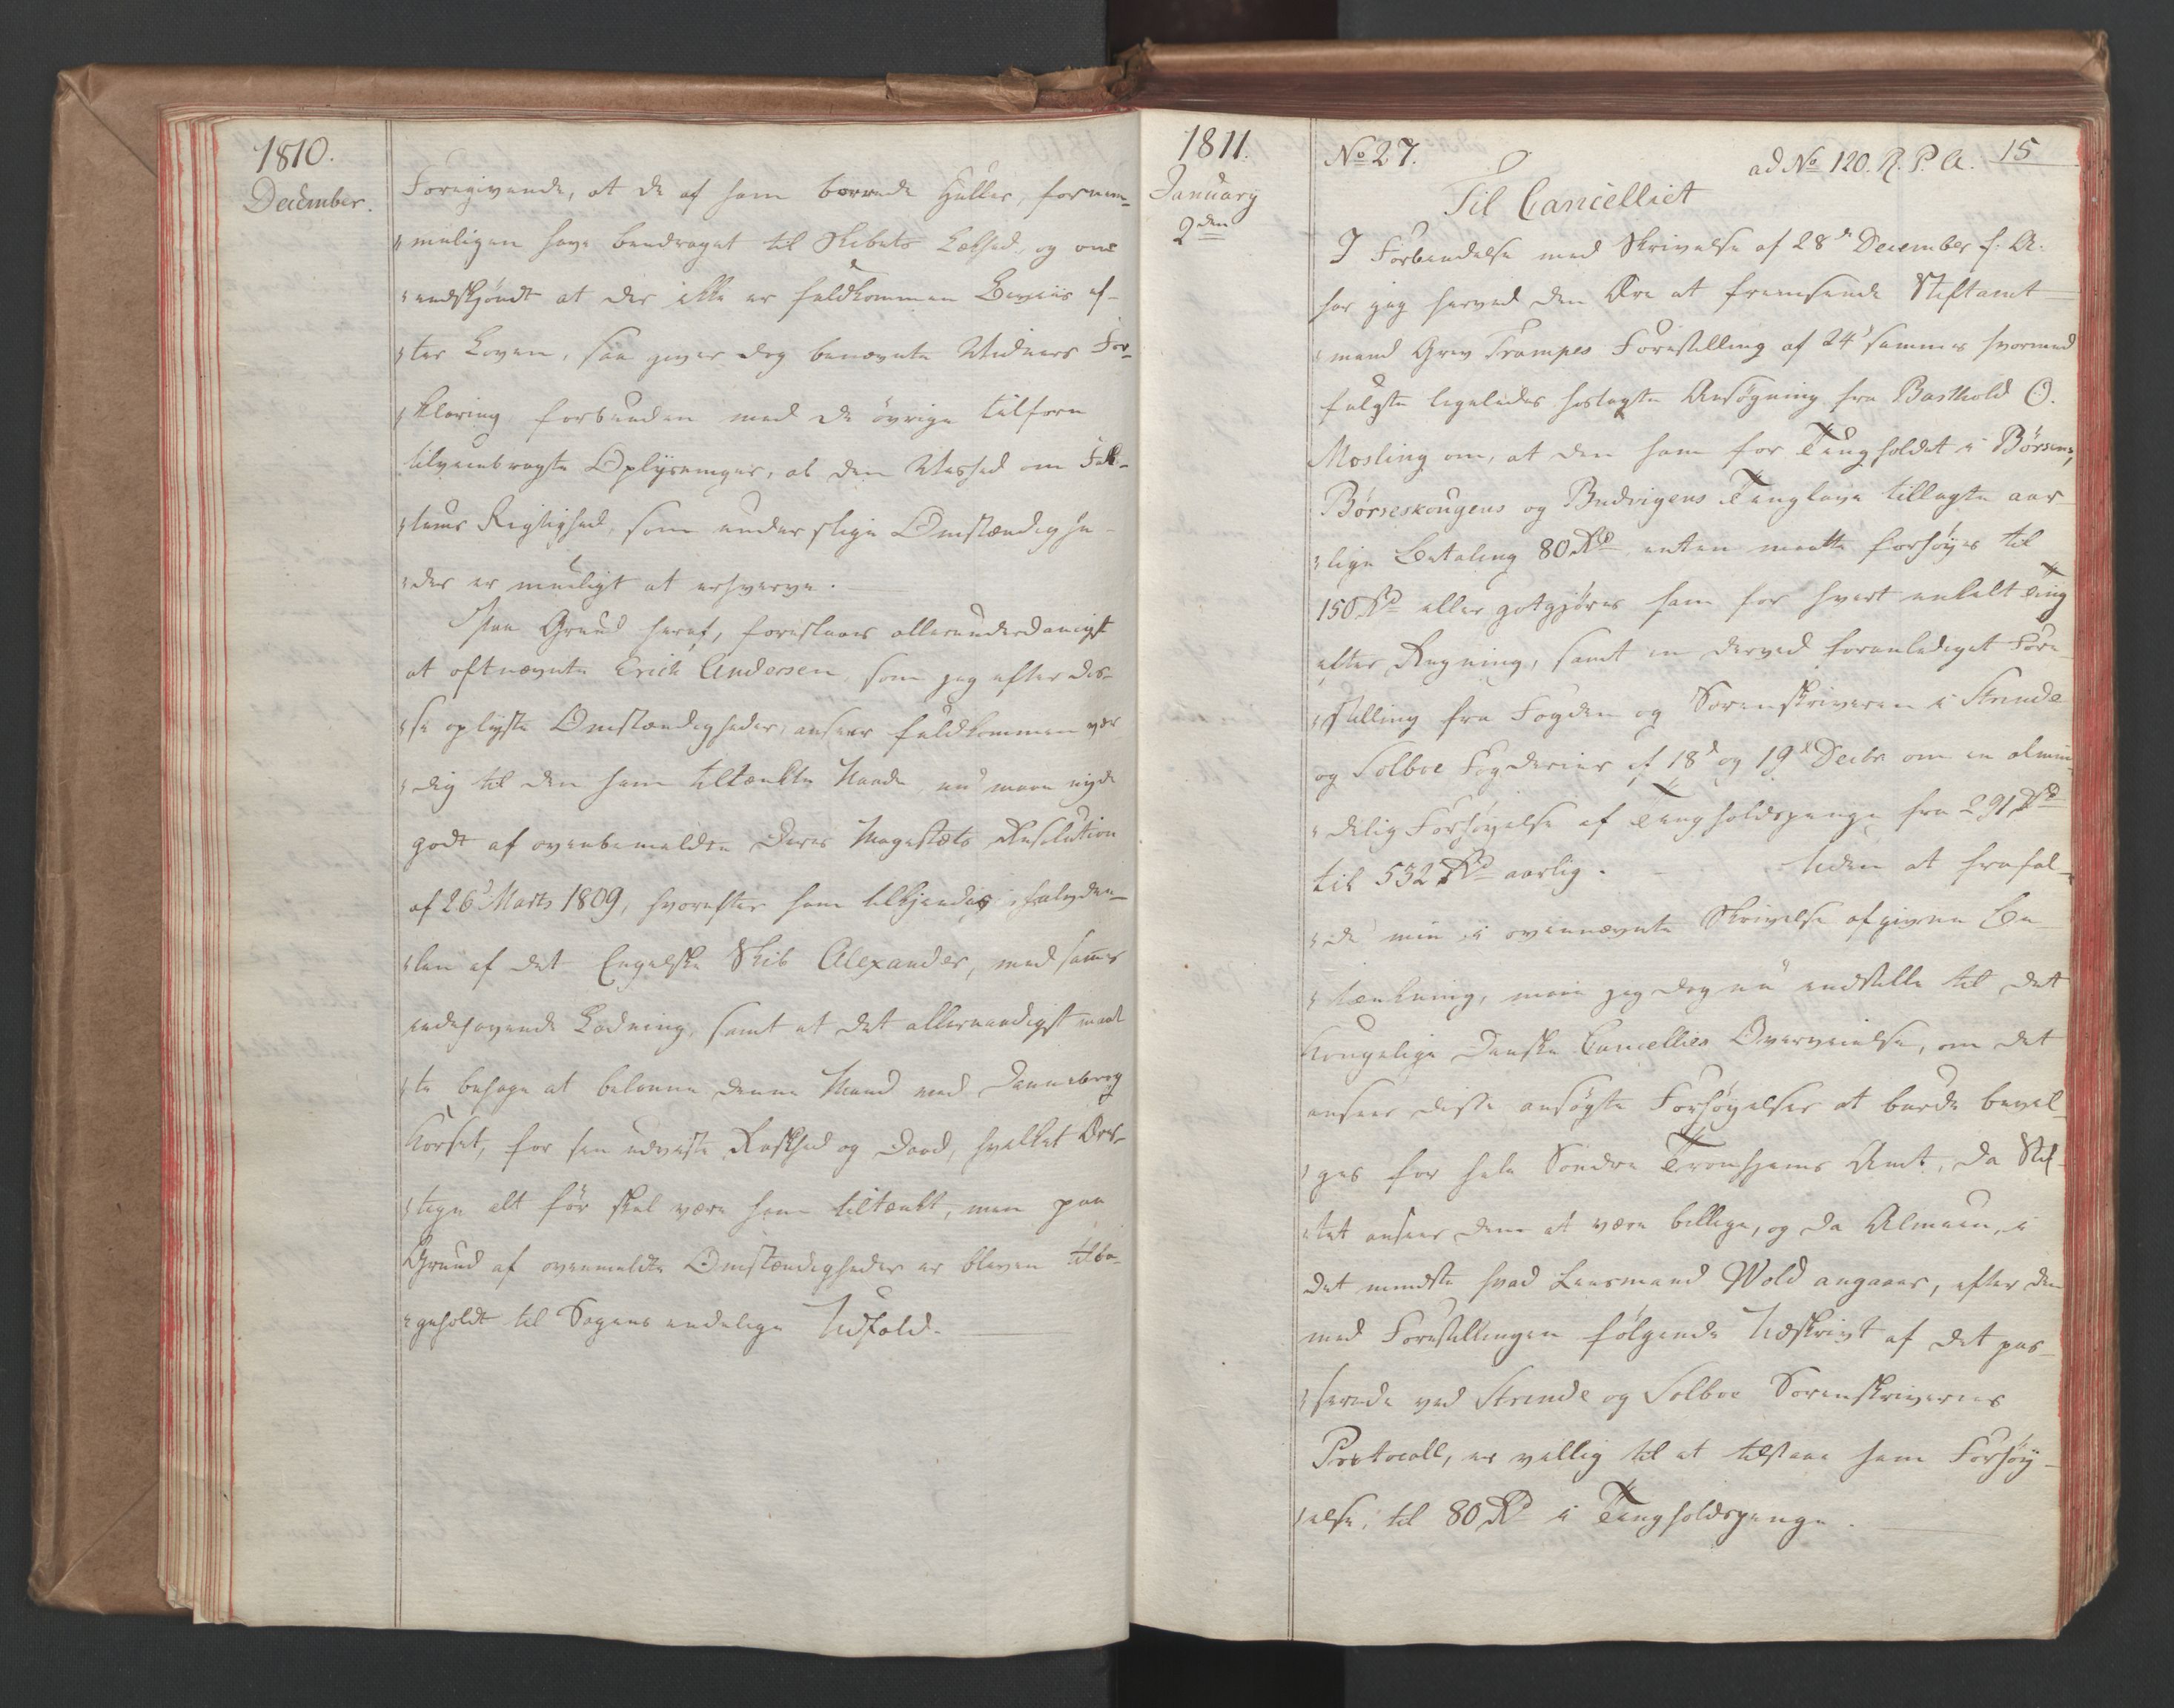 1810.
December.
Foregivende, at de af ham borrede Huller, formeen-
meligen have bendraget til Skibets Lækhed, og om
endskjöndt at der ikke er fuldkommen Beviis ef-
ter Loven, saa giver dog benævnte Vidners For-
klaring forbunden med de övrige tilforn
tilveiebragte Oplysninger, al den Vished om Fak-
tums Rigtighed, som under slige Omstændighe-
der er mueligt at erhverve.
Paa Grund heraf, foreslaaes allerunderdanigst
at oftnævnte Erich Andersen, som jeg efter dis-
se oplyste Omstændigheder, ansær fuldkommen vær-
dig til den ham tiltænkte Naade, nu maae nyde
godt af ovenbemeldte Deres Majestæts Resolution
af 26d Marts 1809, hvorefter ham tilkjendes Halvde-
len af det Engelske Skib Alexander, med sammes
indehavende Ladning, samt at det allernaadigst maat-
te behage at belönne denne Mand med Dannebrog
Korset, for sin udviste Raskhed og Daad, hvilket Ære-
tegn alt för skal være ham tiltænkt, men paa
Grund af ovenmeldte Omstændigheder er bleven tilba-
geholdt til Sagens endelige Udfald.
1811.
January
2den
No 27.
ad No 120. R. P. A.
15
Til Cancelliet
I Forbindelse med Skrivelse af 28de December f. A.
har jeg herved den Ære at fremsende Stiftamt-
mand Grev Trampes Forestilling af 24d sammes hvormed
fulgte ligeledes hoslagte Ansögning fra Barthold O.
Mosling om, at den ham for Tingholdet i Börsens,
Börseskougens og Budvigens Tinglave tillagte aar-
lige Betaling 80 Rd enten maatte forhöyes til
150 Rd eller godtgjöres ham for hvert enkelt Ting
efter Regning, samt en derved foranlediget Fore-
stilling fra Fogden og Sorenskriveren i Strinde
og Selboe Fogderier af 18d og 19d Decbr om en almin-
delig Forhöyelse af Tingholdspenge fra 291 Rd
til 532 Rd aarlig. Uden at frafal-
de min i ovennævnte Skrivelse afgivne Be-
tænkning, maae jeg dog nu indstille til det
Kongelige Danske Cancellies Overveielse, om det
ansaaer disse ansögte Forhöyelser at burde bevil-
ges for hele Söndre Tronhjems Amt, da Stif-
tet ansaaer dem at være billige, og da Almuen, i
det mindste hvad Lensmand Wold angaaer, efter den
med Forestillingen fölgende Udskrivt af det pas-
serede ved Strinde og Selboe Sorenskriveries
Protocoll, er villig til at tilstaae ham Forhöy-
else til 80 Rd i Tingholdspenge.